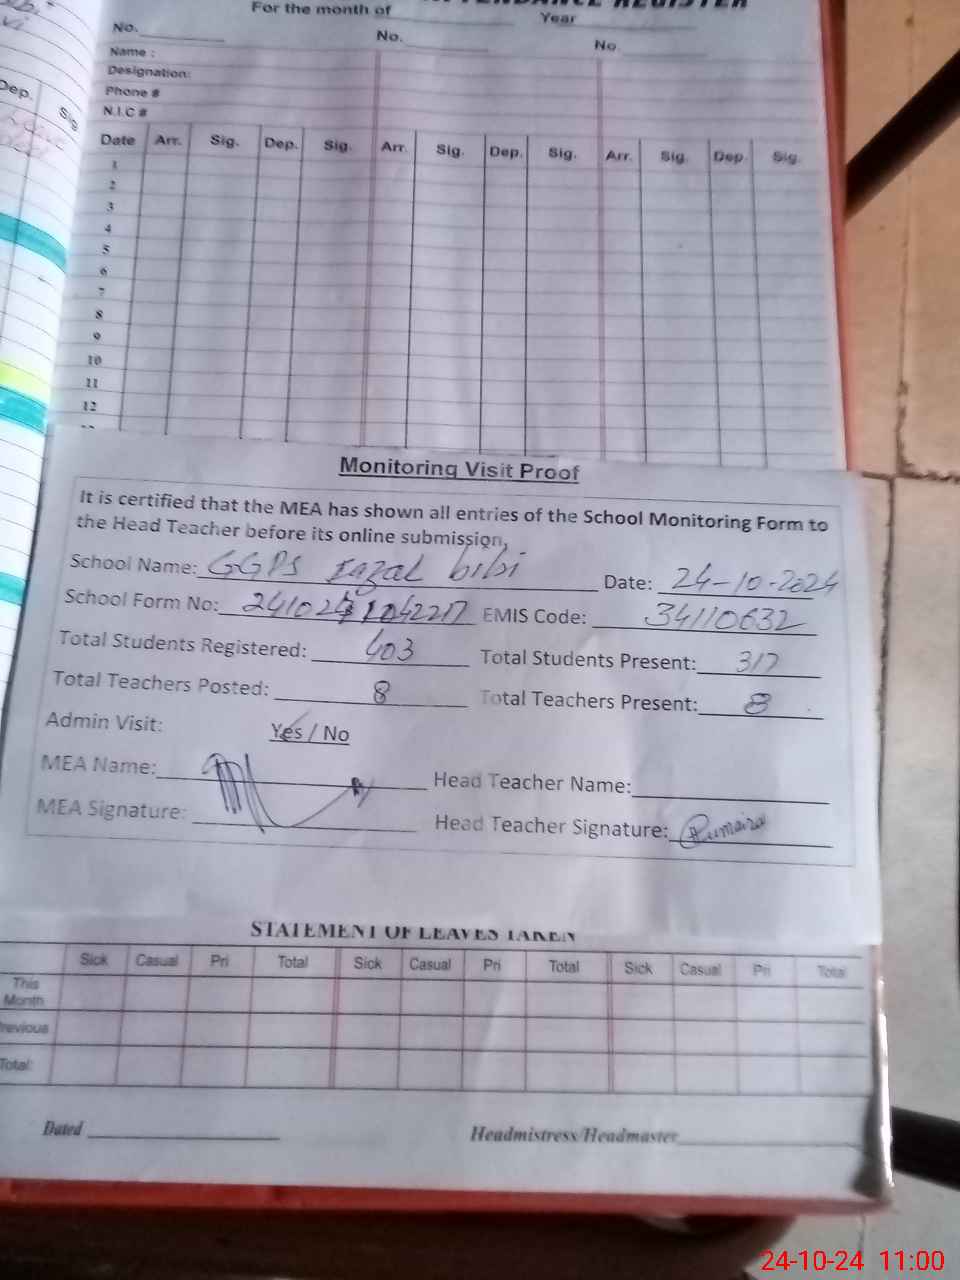 ATTENDANCE REGISTER
For the month of Year
No. No. No.
Name :
Designation:
Phone #
N.I.C #
Dep. Sig
Date Arr. Sig. Dep. Sig. Arr. Sig. Dep. Sig. Arr. Sig. Dep. Sig.
1
2
3
4
5
6
7
8
9
10
11
12
Monitoring Visit Proof
It is certified that the MEA has shown all entries of the School Monitoring Form to
the Head Teacher before its online submission.
School Name: GGPS Fazal bibi Date: 24-10-2024
School Form No: EMIS Code: 34110632
Total Students Registered: 403 Total Students Present: 317
Total Teachers Posted: 8 Total Teachers Present: 8
Admin Visit: Yes / No
MEA Name: Head Teacher Name:
MEA Signature: Head Teacher Signature: Rumaisa
STATEMENT OF LEAVES TAKEN
Sick Casual Pri Total Sick Casual Pri Total Sick Casual Pri Total
This
Month
Previous
Total:
Dated Headmistress/Headmaster
24-10-24 11:00